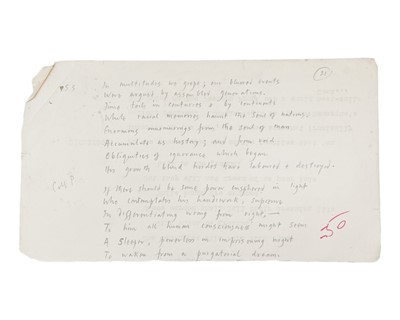 In multitudes we grope; our blurred wants
Were urged by assembled generations.
Time tells in centuries & by continents
While racial memories haunt the Soul of nations.
murmurings from the soul of man
Accumulate as history; and from void
Obligation of ignorance which began
His growth blind hordes have laboured & destroyed.
If there should be some power ensphered in light
Who contemplates his handiwork, supreme
In differentiating wrong from right,—
To him all human consciousness might seem
A Sleeper, powerless in imprisoning night
To waken from a purgatorial dream.
50